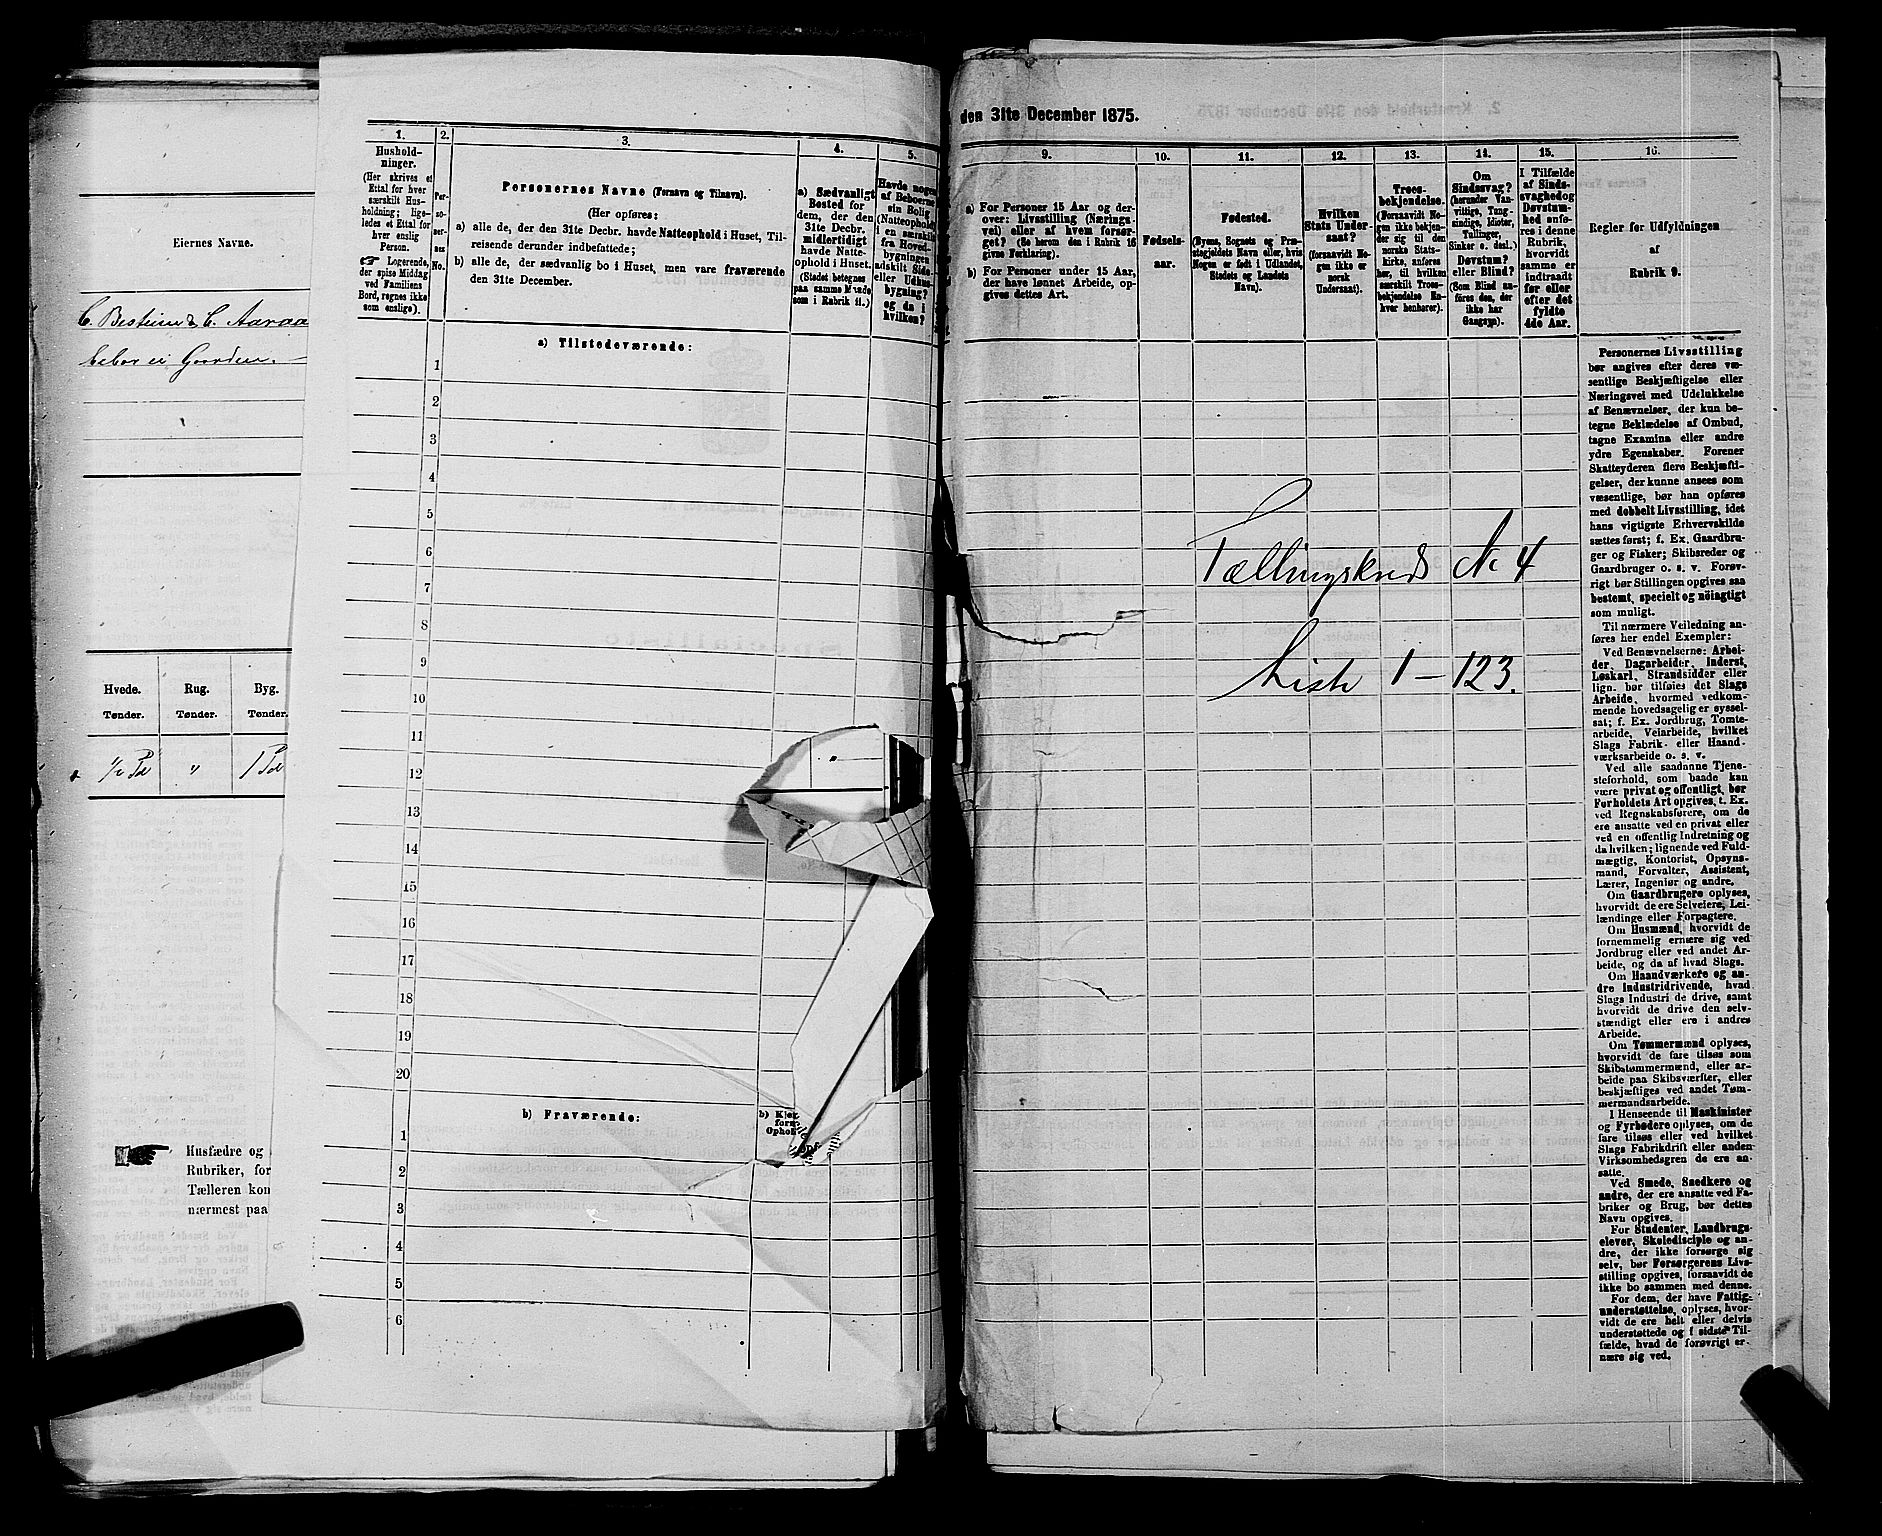 Eiernes Navne.
bebor ei Gaarden.
Hvede.
Rug.
Byg.
Tønder.
Tønder.
Tønder.
1/2 Pd
"
1 Pd
Husfædre og
Rubriker, for
Tælleren kon
nærmest paa
1.
2.
3.
4.
5.
Hushold-
ninger.
(Her skrives et
Ettal for hver
særskilt Hus-
holdning; lige-
ledes et Ettal for
hver enslig
Person.
☞ Logerende,
der spise Middag
ved Familiens
Bord, regnes ikke
som enslige).
Per-
so-
ner-
nes
No.
Personernes Navne (Fornavn og Tilnavn).
(Her opføres:
a) alle de, der den 31te Decbr. havde Natteophold i Huset, Til-
reisende derunder indbefattede;
b) alle de, der sædvanlig bo i Huset, men vare fraværende
den 31te December.
a) Sædvanligt
Bosted for
dem, der den
31te Decbr.
midlertidigt
havde Natte-
ophold i Huset.
(Stedet betegnes
paa samme Maade
som i Rubrik 11.)
Havde nogen
af Beboerne
sin Bolig
(Natteophold)
i en særskilt
fra Hoved-
bygningen
adskilt Side-
eller Udhus-
bygning?
og da i
hvilken?
a) Tilstedeværende:
1
2
3
4
5
6
7
8
9
10
11
12
13
14
15
16
17
18
19
20
b) Fraværende:
b) Kjen
form
Ophol
1
2
3
4
5
6
den 31te December 1875.
9.
10.
11.
12.
13.
14.
15.
16.
a) For Personer 15 Aar og der-
over: Livsstilling (Nærings-
vei) eller af hvem forsør-
get? (Se herom den i Rubrik 16
givne Forklaring).
b) For Personer under 15 Aar,
der have lønnet Arbeide, op-
gives dettes Art.
Fødsels-
aar.
Fødested.
(Byens, Sognets og Præ-
stegjeldets Navn eller, hvis
Nogen er født i Udlandet,
Stedets og Landets
Navn).
Hvilken
Stats Under-
saat?
(forsaavidt No-
gen ikke er
norsk
Undersaat).
Troes-
bekjendelse.
(Forsaavidt No-
gen ikke bekjen-
der sig til den
norske Stats-
kirke, anføres
her, til hvilken
særskilt Troes-
bekjendelse En-
hver henhører).
Om
Sindssvag?
(herunder Van-
vittige, Tung-
sindige, Idioter,
Tullinger,
Sinker o. desl.)
Døvstum?
eller Blind?
(Som Blind an-
føres den, der
ikke har
Gangsyn).
I Tilfælde
af Sinds-
svaghed og
Døvstum-
hed anfø-
res i denne
Rubrik,
hvorvidt
samme er
indtraadt
før eller
efter det
fyldte
4de Aar.
Regler for Udfyldningen
af
Rubrik 9.
Tællingskreds No 4
Liste 1 – 123.
Personernes Livsstilling
bør angives efter deres væ-
sentlige Beskjæftigelse eller
Næringsvei med Udelukkelse
af Benævnelser, der kun be-
tegne Beklædelse af Ombud,
tagne Examina eller andre
ydre Egenskaber. Forener
Skatteyderen flere Beskjæfti-
gelser, der kunne ansees som
væsentlige, bør han opføres
med dobbelt Livsstilling, idet
hans vigtigste Erhvervskilde
sættes først; f. Ex. Gaardbru-
ger og Fisker; Skibsreder og
Gaardbruger o. s. v. Forøv-
rigt bør Stillingen opgives saa
bestemt, specielt og nøiagtigt
som muligt.
Til nærmere Veiledning an-
føres her endel Exempler:
Ved Benævnelserne: Arbei-
der, Dagarbeider, Inderst,
Løskarl, Strandsidder eller
lign. bør tilføies det Slags
Arbeide, hvormed vedkom-
mende hovedsagelig er syssel-
sat; f. Ex. Jordbrug, Tomte-
arbeide, Veiarbeide, hvilket
Slags Fabrik- eller Haand-
værksarbeide o. s. v.
Ved alle saadanne Tjene-
steforhold, som baade kan
være privat og offentligt, bør
Forholdets Art opgives, t. Ex.
ved Regnskabsførere, om de
ere ansatte ved en privat eller
ved en offentlig Indretning og
da hvilken; lignende ved Fuld-
mægtig, Kontorist, Opsyns-
mand, Forvalter, Assistent,
Lærer, Ingeniør og andre.
Om Gaardbrugere oplyses,
hvorvidt de ere Selveiere, Lei-
lændinge eller Forpagtere.
Om Husmænd, hvorvidt de
fornemmelig ernære sig ved
Jordbrug eller ved andet Ar-
beide, og da af hvad Slags.
Om Haandværkere og an-
dre Industridrivende, hvad
Slags Industri de drive, samt
hvorvidt de drive den selv-
stændigt eller ere i andres
Arbeide.
Om Tømmermænd oplyses,
hvorvidt de fare tilsøs som
Skibstømmermænd, eller ar-
beide paa Skibsværfter, eller
beskjæftiges ved andet Tøm-
mermandsarbeide.
I Henseende til Maskinister
og Fyrbødere oplyses, om de
fare tilsøs eller ved hvilket
Slags Fabrikdrift eller anden
Virksomhedsgren de ere an-
satte.
Ved Smede, Snedkere og
andre, der ere ansatte ved Fa-
briker og Brug, bør dettes
Navn opgives.
For Studenter, Landbrugs-
elever, Skoledisciple og an-
dre, der ikke forsørge sig
selv, bør Forsørgerens Livs-
stilling opgives, forsaavidt de
ikke bo sammen med denne.
For dem, der have Fattig-
understøttelse, oplyses, hvor-
vidt de ere helt eller delvis
understøttede og i sidste Til-
fælde, hvad de forøvrigt er-
nære sig ved.